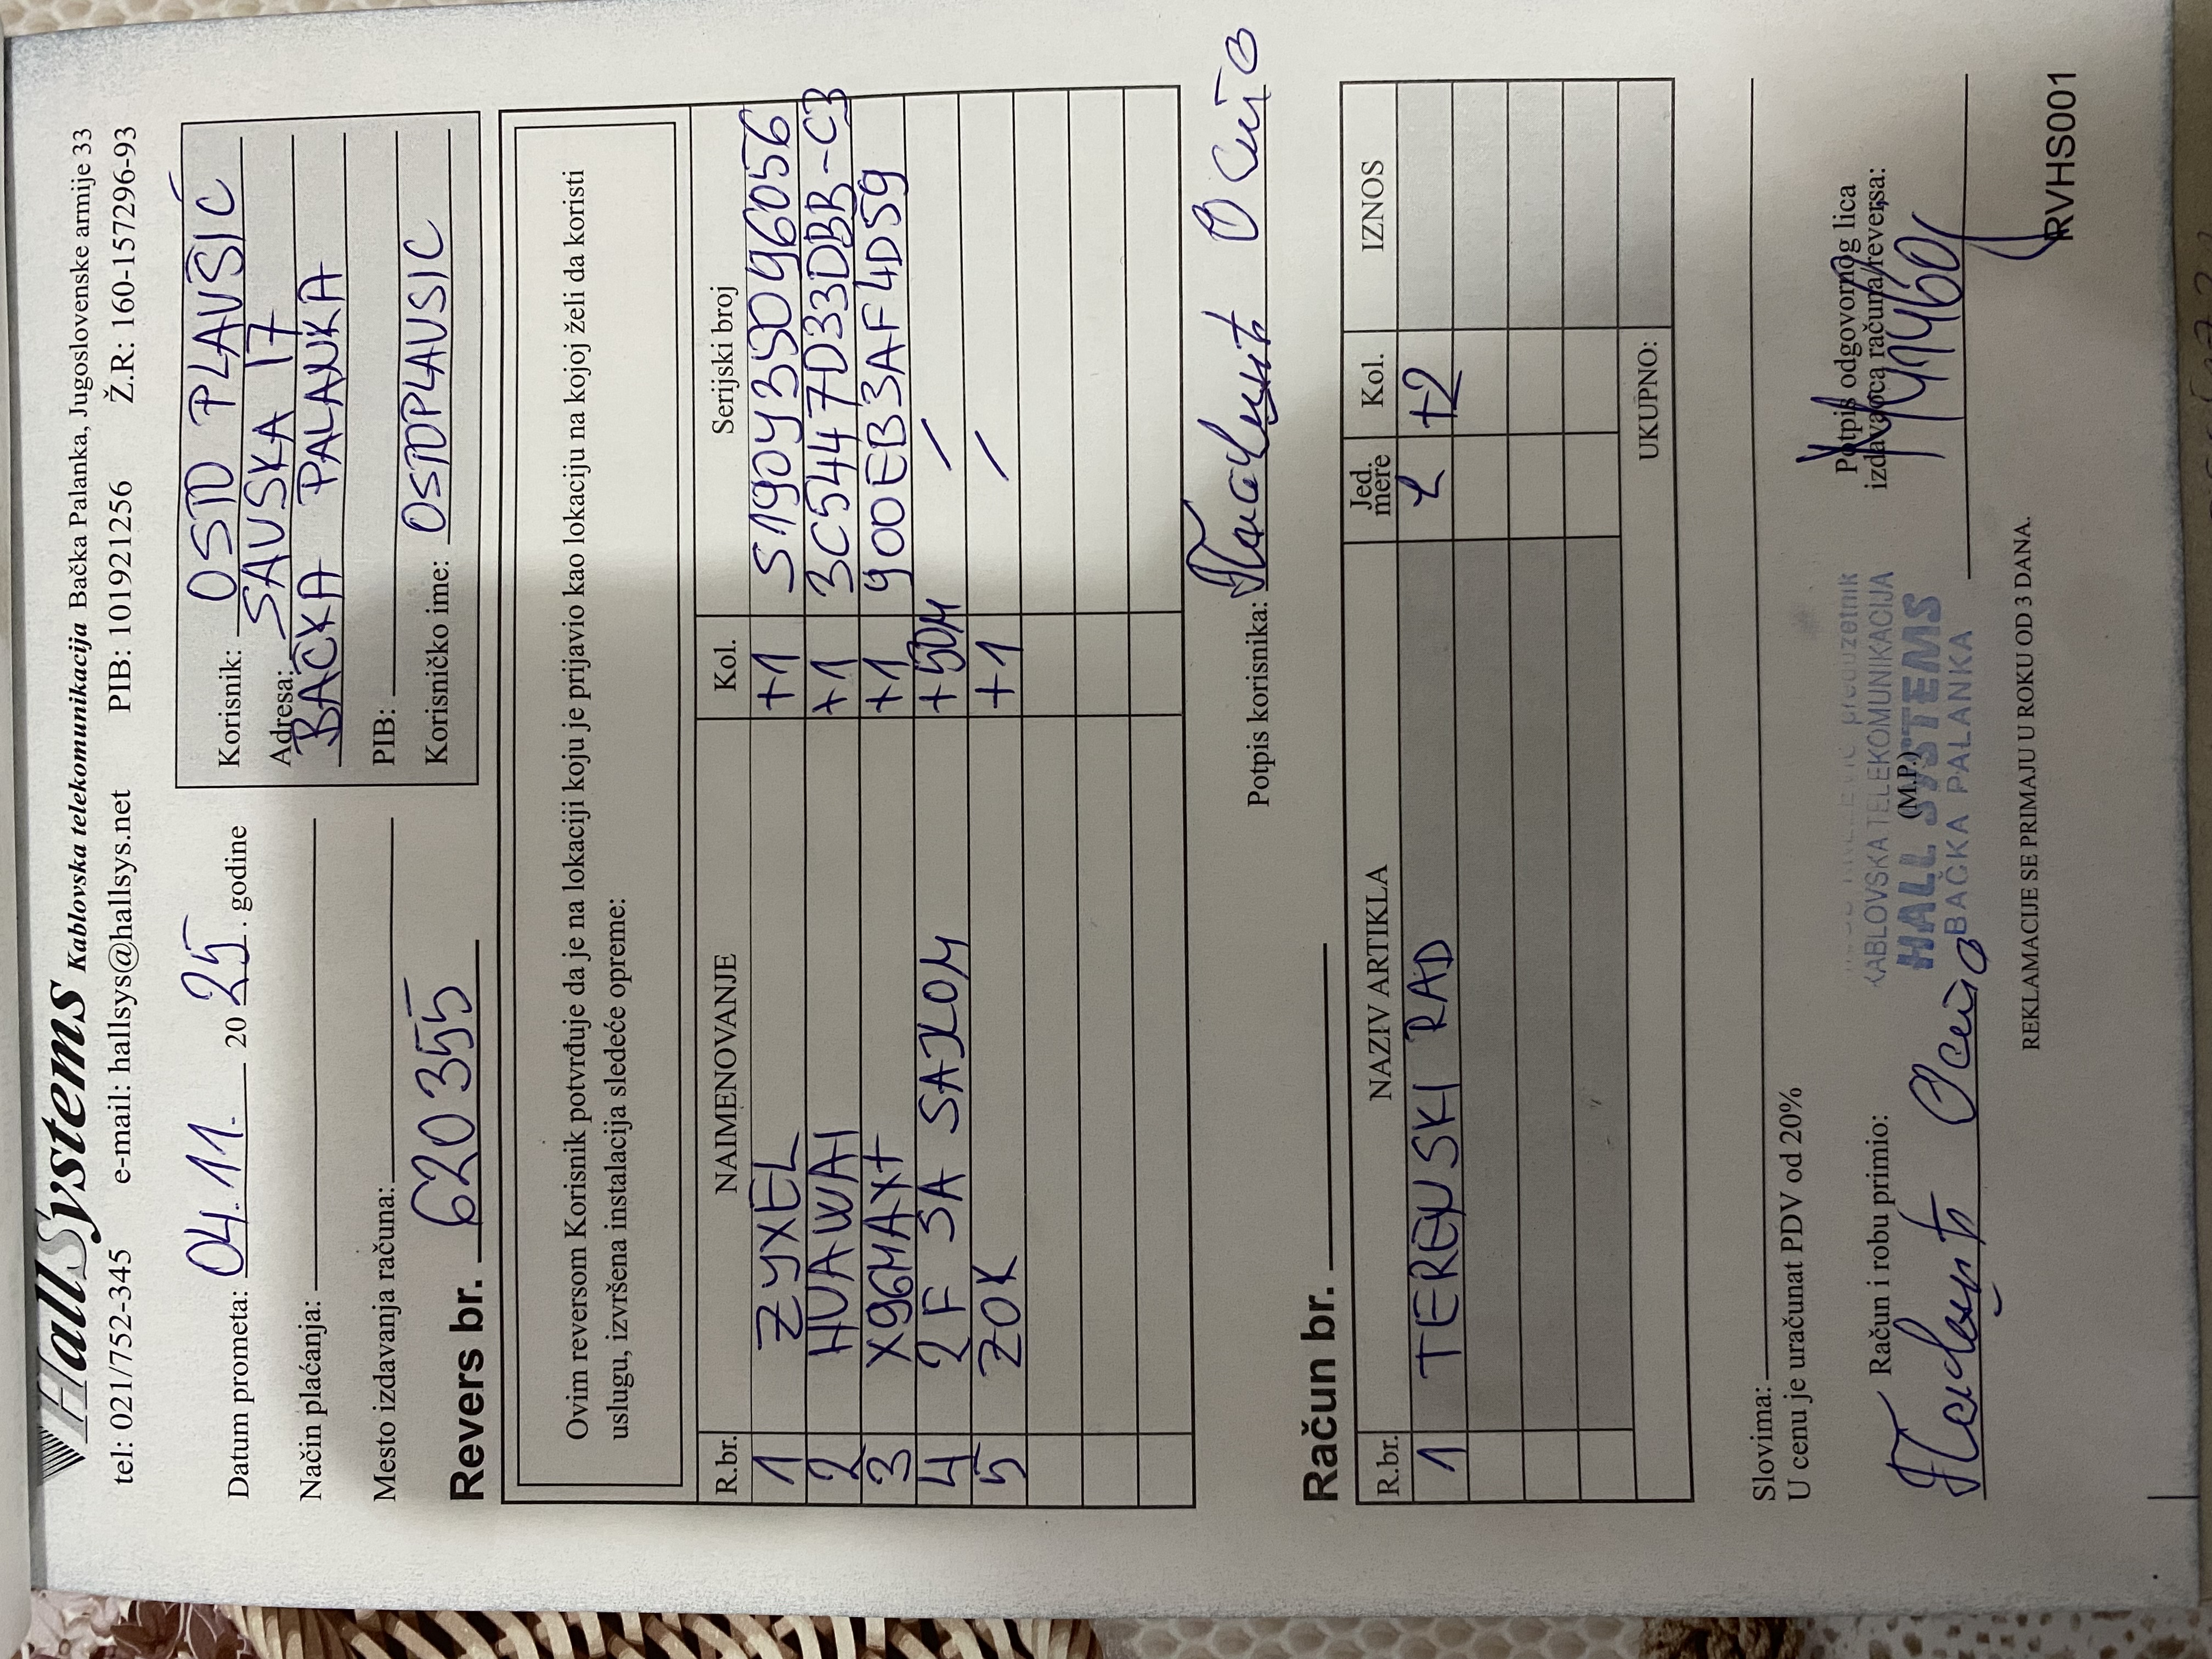 HallSystems Kablovska telekomunikacija Bačka Palanka, Jugoslovenske armije 33
tel: 021/752-345 e-mail: hallsys@hallsys.net PIB: 101921256 Ž.R: 160-157296-93
Datum prometa: 04.11. 20 25. godine
Način plaćanja:
Mesto izdavanja računa:
Revers br. 620355
Korisnik: OSTO PLAVŠIĆ
Adresa: SAVSKA 17
BAČKA PALANKA
PIB:
Korisničko ime: OSTOPLAVSIC
Ovim reversom Korisnik potvrđuje da je na lokaciji koju je prijavio kao lokaciju na kojoj želi da koristi
uslugu, izvršena instalacija sledeće opreme:
R.br. NAIMENOVANJE Kol. Serijski broj
1 ZYXEL +1 S190Y35096056
2 HUAWAI +1 3C5447D33DBR-C3
3 X96MAX+ +1 900EB3AF4D59
4 2F SA SAJLOM +50M /
5 ZOK +1 /
Potpis korisnika:
Račun br.
R.br. NAZIV ARTIKLA Jed. mere Kol. IZNOS
1 TERENSKI RAD +2
UKUPNO:
Slovima:
U cenu je uračunat PDV od 20%
Račun i robu primio:
(M.P.)
Potpis odgovornog lica
izdavaoca računa/reversa:
preduzetnik
KABLOVSKA TELEKOMUNIKACIJA
HALL SYSTEMS
BAČKA PALANKA
REKLAMACIJE SE PRIMAJU U ROKU OD 3 DANA.
RVHS001